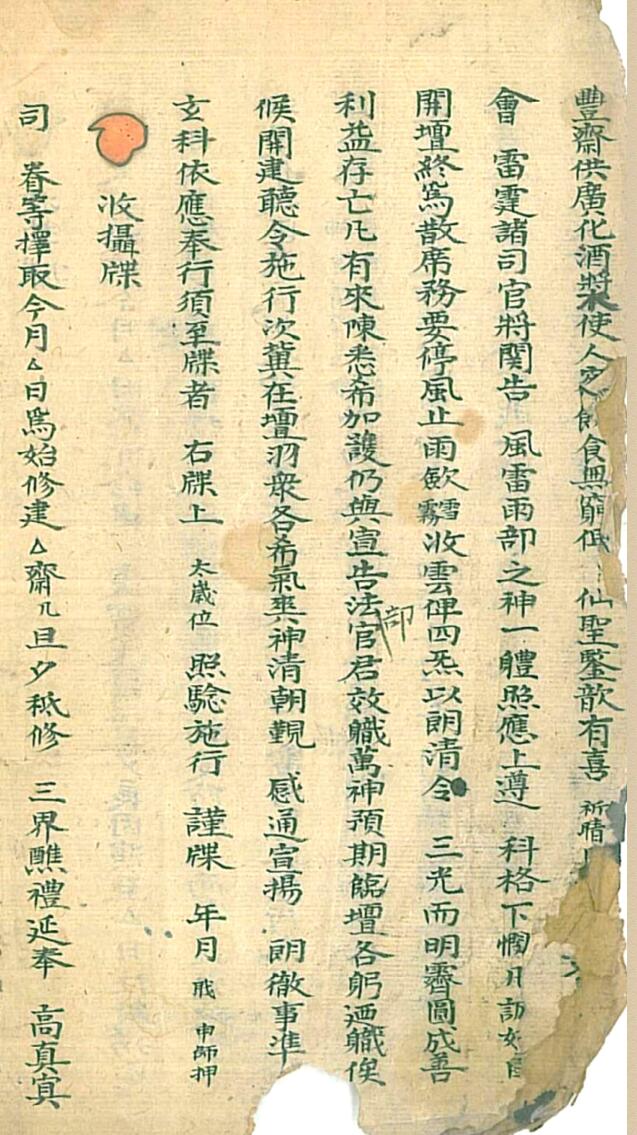 豐齋供廣化酒漿使人 飲食無窮低 仙聖鑒歆有喜 祈晴
會 雷霆諸司官將関告 風雷雨部之神一體照應上遵 科格下憫月
開壇終爲散席務要停風止雨歛霧䨓收雲俾四炁以朗清令 三光而明霽圓成善
利益存亡凡有來陳悉希加護仍與宣告法官君效職萬神預期臨壇各躬迺職俟
部
候開建聽令施行次冀在壇羽衆各希氣爽神清朝觐 感通宣揚 朗徹事準
玄科依應奉行須至牒者 右牒上 太歲位 照驗施行 謹牒 年月 職 申師押
收攝牒
司 眷等擇取今月△日爲始修建△齋几旦夕祗修 三界醮禮延奉 高真寘